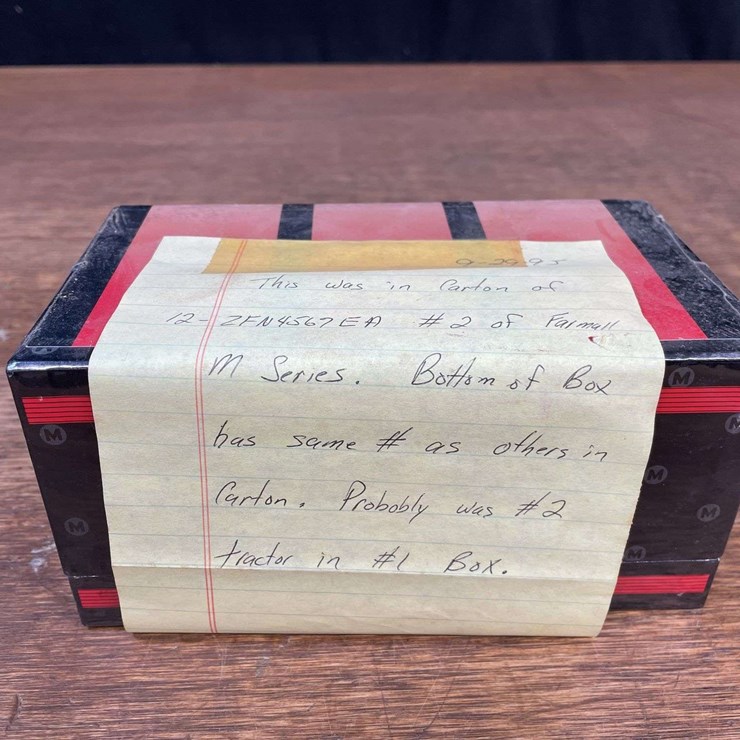 9-29-95
This was in Carton of
12- ZFN4567EA #2 of Farmall
M Series. Bottom of Box
has same # as others in
Carton. Probobly was #2
tractor in #1 Box.
M
M
M
M
M
M